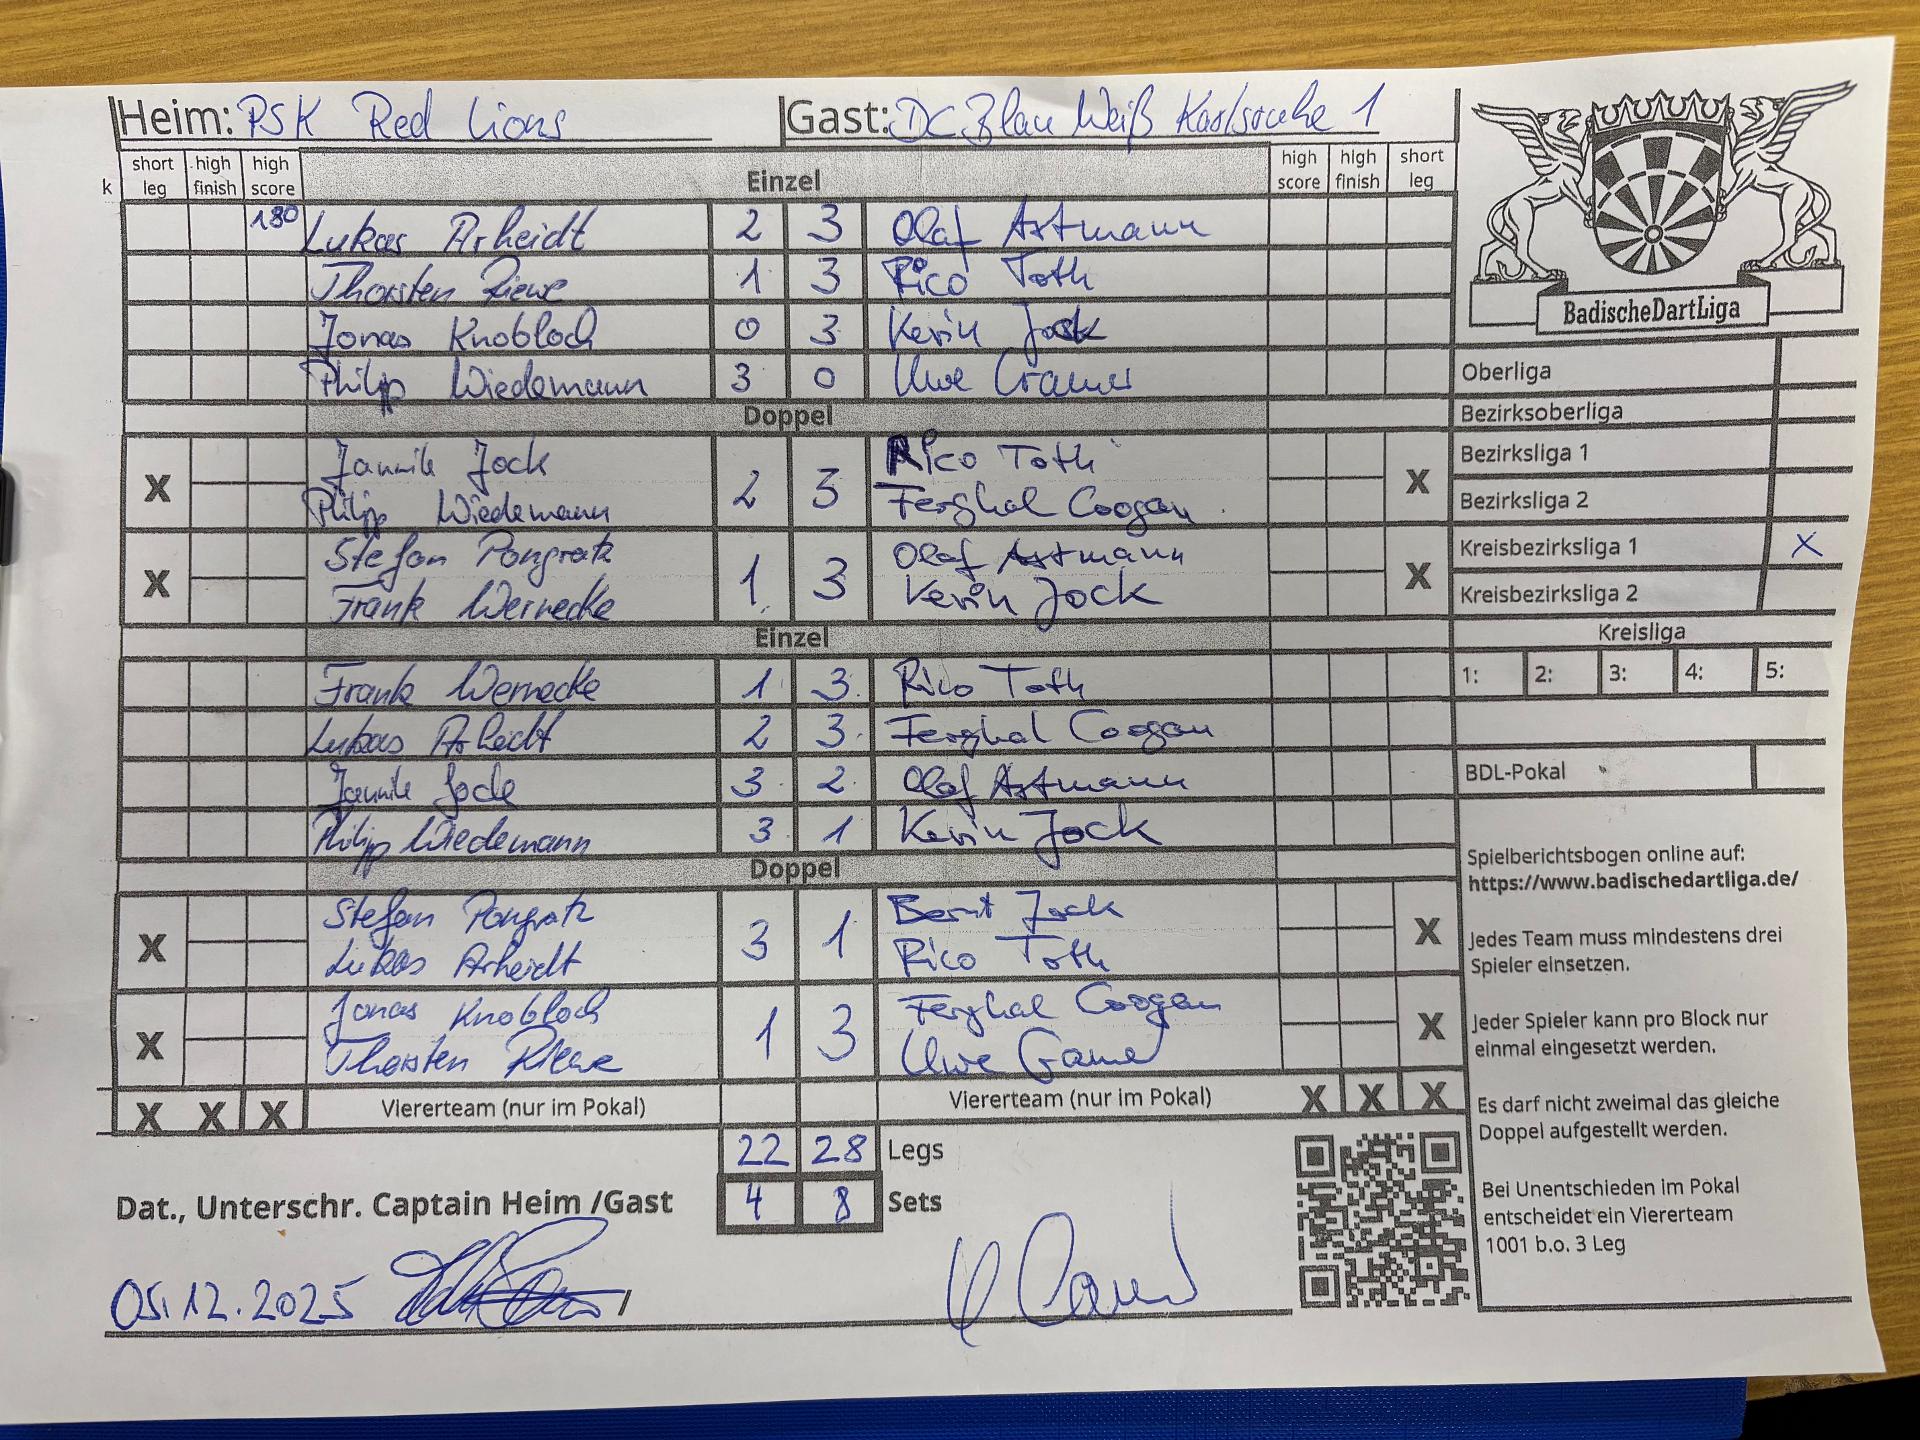 Heim: PSK Red Lions Gast: DC Blau Weiß Karlsruhe 1
k short leg high finish high score Einzel high score high finish short leg
180 Lukas Arheidt 2 3 Olaf Astmann
Thorsten Riewe 1 3 Rico Toth
Jonas Knobloch 0 3 Kevin Jock
Philipp Wiedemann 3 0 Uwe Cramer
Doppel
X Jannik Jock 2 3 Rico Toth X
Philipp Wiedemann Ferghal Coogan
X Stefan Pongratz 1 3 Olaf Astmann X
Frank Wernecke Kevin Jock
Einzel
Frank Wernecke 1 3 Rico Toth
Lukas Arheidt 2 3 Ferghal Coogan
Jannik Jock 3 2 Olaf Astmann
Philipp Wiedemann 3 1 Kevin Jock
Doppel
X Stefan Pongratz 3 1 Bernt Jock X
Lukas Arheidt Rico Toth
X Jonas Knobloch 1 3 Ferghal Coogan X
Thorsten Riewe Uwe Cramer
X X X Viererteam (nur im Pokal) Viererteam (nur im Pokal) X X X
22 28 Legs
Dat., Unterschr. Captain Heim /Gast 4 8 Sets
05.12.2025 /
BadischeDartLiga
Oberliga
Bezirksoberliga
Bezirksliga 1
Bezirksliga 2
Kreisbezirksliga 1 X
Kreisbezirksliga 2
Kreisliga
1: 2: 3: 4: 5:
BDL-Pokal
Spielberichtsbogen online auf:
https://www.badischedartliga.de/
Jedes Team muss mindestens drei
Spieler einsetzen.
Jeder Spieler kann pro Block nur
einmal eingesetzt werden.
Es darf nicht zweimal das gleiche
Doppel aufgestellt werden.
Bei Unentschieden im Pokal
entscheidet ein Viererteam
1001 b.o. 3 Leg